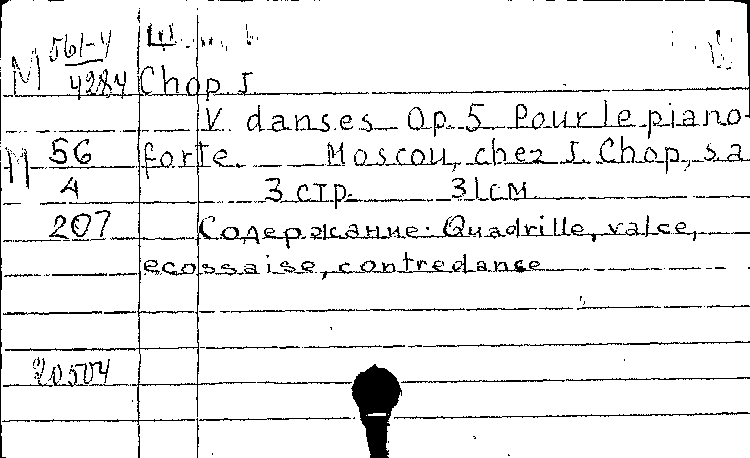 M 561-4
4284 Chop J.
V danses Op. 5 Pour le piano-
M 56 forte. Moscou, chez J. Chop, s.a
A 3 стр. 31 см
207 Содержание: Quadrille, valce,
ecossaise, contredanse
20504